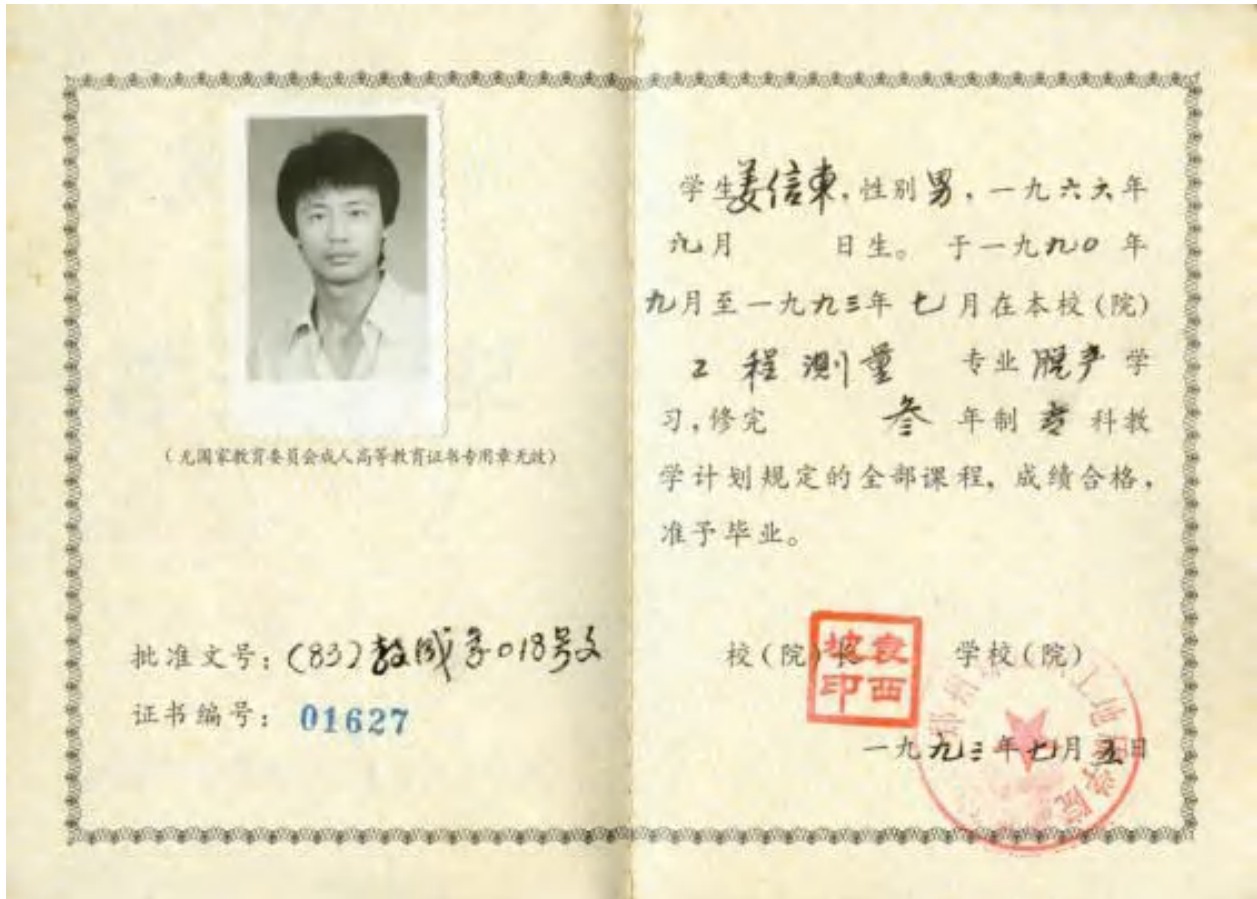 (无国家教育委员会成人高等教育证书专用章无效)
批准文号：(83)教成字018号文
证书编号： 01627
学生姜信東，性别男，一九六六年
九月 日生。 于一九九0 年
九月至一九九三年 七月在本校(院)
工程测量 专业 脱产 学
习，修完 叁 年制 专 科教
学计划规定的全部课程，成绩合格，
准予毕业。
校(院)长 学校(院)
袁西坡印
一九九三年七月五日